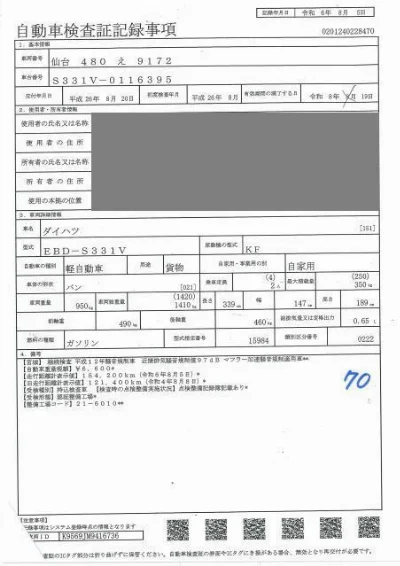 記録年月日 令和 6年 8月 5日
自動車検査証記録事項
0201240228470
1. 基本情報
車両番号 仙台 480 え 9172
車台番号 S331V-0116395
交付年月日 平成26年 8月20日 初度検査年月 平成26年 8月 有効期間の満了する日 令和 8年 8月19日
2. 使用者・所有者情報
使用者の氏名又は名称
使用者の住所
所有者の氏名又は名称
所有者の住所
使用の本拠の位置
3. 車両詳細情報
車名 ダイハツ [161]
型式 EBD-S331V 原動機の型式 KF
自動車の種別 軽自動車 用途 貨物 自家用・事業用の別 自家用
車体の形状 バン [021] 乗車定員 (4) 2人 最大積載量 (250) 350kg
車両重量 950kg 車両総重量 (1420) 1410kg 長さ 339cm 幅 147cm 高さ 189cm
前軸重 490kg 後軸重 460kg 総排気量又は定格出力 0.65 L
燃料の種類 ガソリン 型式指定番号 15984 類別区分番号 0222
4. 備考
[自動車重量税額] ¥6,600*
[走行距離計表示値] 154,200km (令和6年8月5日)*
[旧走行距離計表示値] 121,400km (令和4年8月5日)*
[受検種別] 持込検査車 [検査時の点検整備実施状況] 点検整備記録簿記載あり*
[整備工場コード] 21-6010**
70
[注意事項]
K9569JM9416736